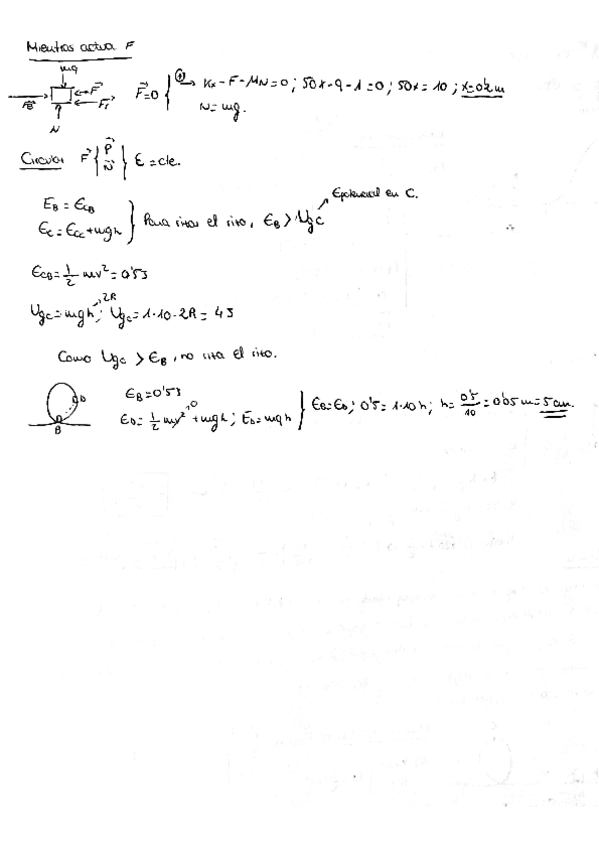 Mientras actua F
mg
Fe F Fr
N
F=0 { ⊕→ Kx-F-MN=0; 50x-9-1=0; 50x=10; x=0'2m
N=mg.
Circular F { P N } E=cte.
Epotencial en C.
EB = ECB
EC = ECC+mgh } Para rizar el rizo, EB > UgC
ECB = 1/2 mv² = 0'5J
UgC=mgh; 2R UgC = 1·10·2R = 4J
Como UgC > EB, no riza el rizo.
D
B
EB=0'5J
ED = 1/2 mv² 0 + mgh; ED=mgh } EB=ED; 0'5=1·10h; h = 0'5/10 = 0'05 m = 5 cm.